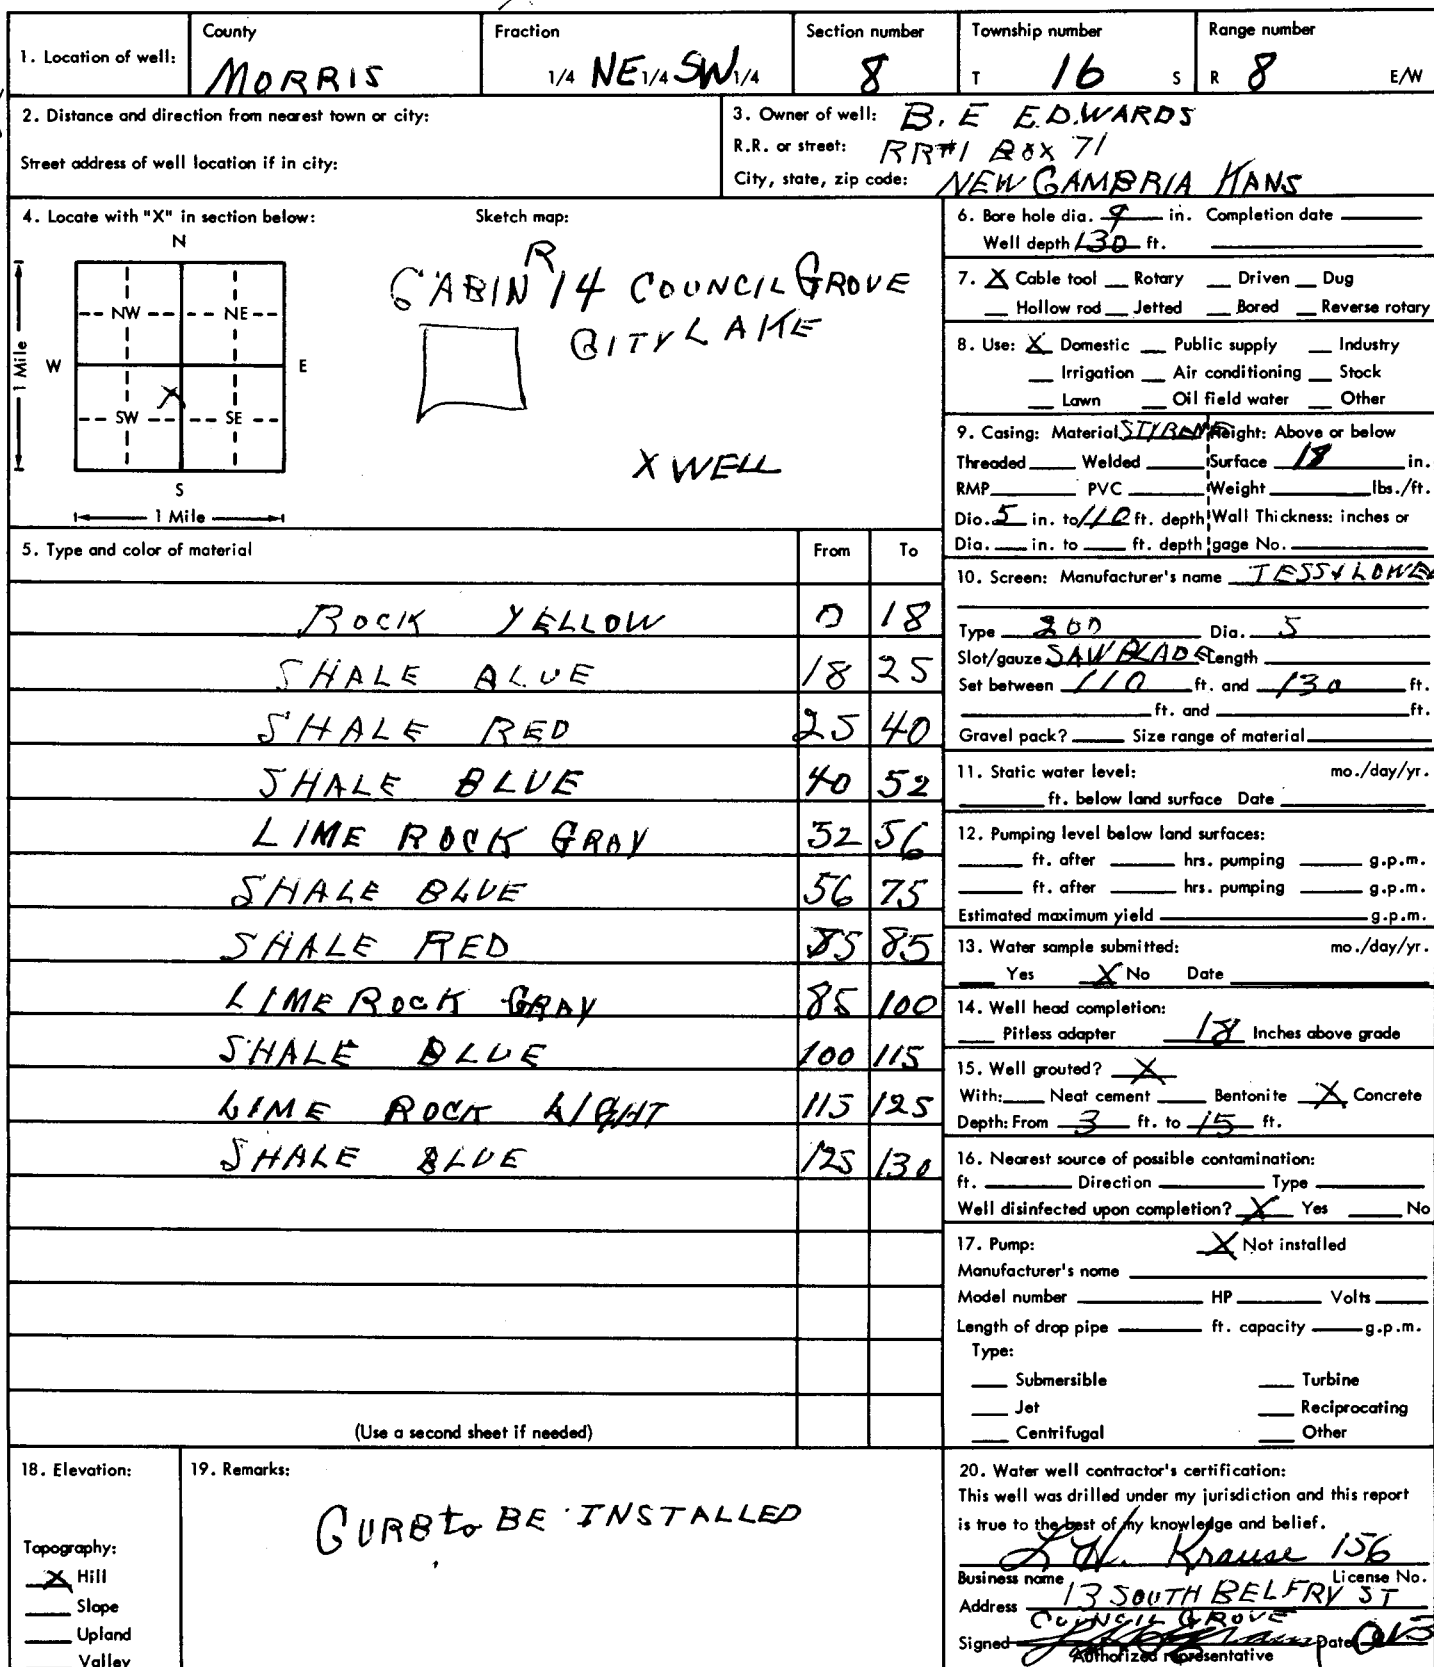 1. Location of well: County MORRIS Fraction 1/4 NE 1/4 SW 1/4 Section number 8 Township number T 16 S Range number R 8 E/W
2. Distance and direction from nearest town or city:
Street address of well location if in city:
3. Owner of well: B. E EDWARDS
R.R. or street: RR#1 BOX 71
City, state, zip code: NEW CAMBRIA KANS
4. Locate with "X" in section below: Sketch map:
N
NW NE
W E
SW X SE
S
1 Mile
1 Mile
CABIN R 14 COUNCIL GROVE
CITY LAKE
X WELL
5. Type and color of material From To
ROCK YELLOW 0 18
SHALE BLUE 18 25
SHALE RED 25 40
SHALE BLUE 40 52
LIME ROCK GRAY 52 56
SHALE BLUE 56 75
SHALE RED 85
LIME ROCK GRAY 85 100
SHALE BLUE 100 115
LIME ROCK LIGHT 115 125
SHALE BLUE 125 130
(Use a second sheet if needed)
6. Bore hole dia. 9 in. Completion date
Well depth 130 ft.
7. X Cable tool Rotary Driven Dug
Hollow rod Jetted Bored Reverse rotary
8. Use: X Domestic Public supply Industry
Irrigation Air conditioning Stock
Lawn Oil field water Other
9. Casing: Material STYRENE Height: Above or below
Threaded Welded Surface 18 in.
RMP PVC Weight lbs./ft.
Dia. 5 in. to 110 ft. depth Wall Thickness: inches or
Dia. in. to ft. depth gage No.
10. Screen: Manufacturer's name
Type 200 Dia. 5
Slot/gauze SAW BLADE Length
Set between 110 ft. and 130 ft.
ft. and ft.
Gravel pack? Size range of material
11. Static water level: mo./day/yr.
ft. below land surface Date
12. Pumping level below land surfaces:
ft. after hrs. pumping g.p.m.
ft. after hrs. pumping g.p.m.
Estimated maximum yield g.p.m.
13. Water sample submitted: mo./day/yr.
Yes X No Date
14. Well head completion:
Pitless adapter 18 Inches above grade
15. Well grouted? X
With: Neat cement Bentonite X Concrete
Depth: From 3 ft. to 15 ft.
16. Nearest source of possible contamination:
ft. Direction Type
Well disinfected upon completion? X Yes No
17. Pump: X Not installed
Manufacturer's name
Model number HP Volts
Length of drop pipe ft. capacity g.p.m.
Type:
Submersible Turbine
Jet Reciprocating
Centrifugal Other
18. Elevation:
Topography:
X Hill
Slope
Upland
Valley
19. Remarks:
CURB to BE INSTALLED
20. Water well contractor's certification:
This well was drilled under my jurisdiction and this report
is true to the best of my knowledge and belief.
L W. Krause 156
Business name License No.
Address 13 SOUTH BELFRY ST
COUNCIL GROVE
Signed Date
Authorized representative